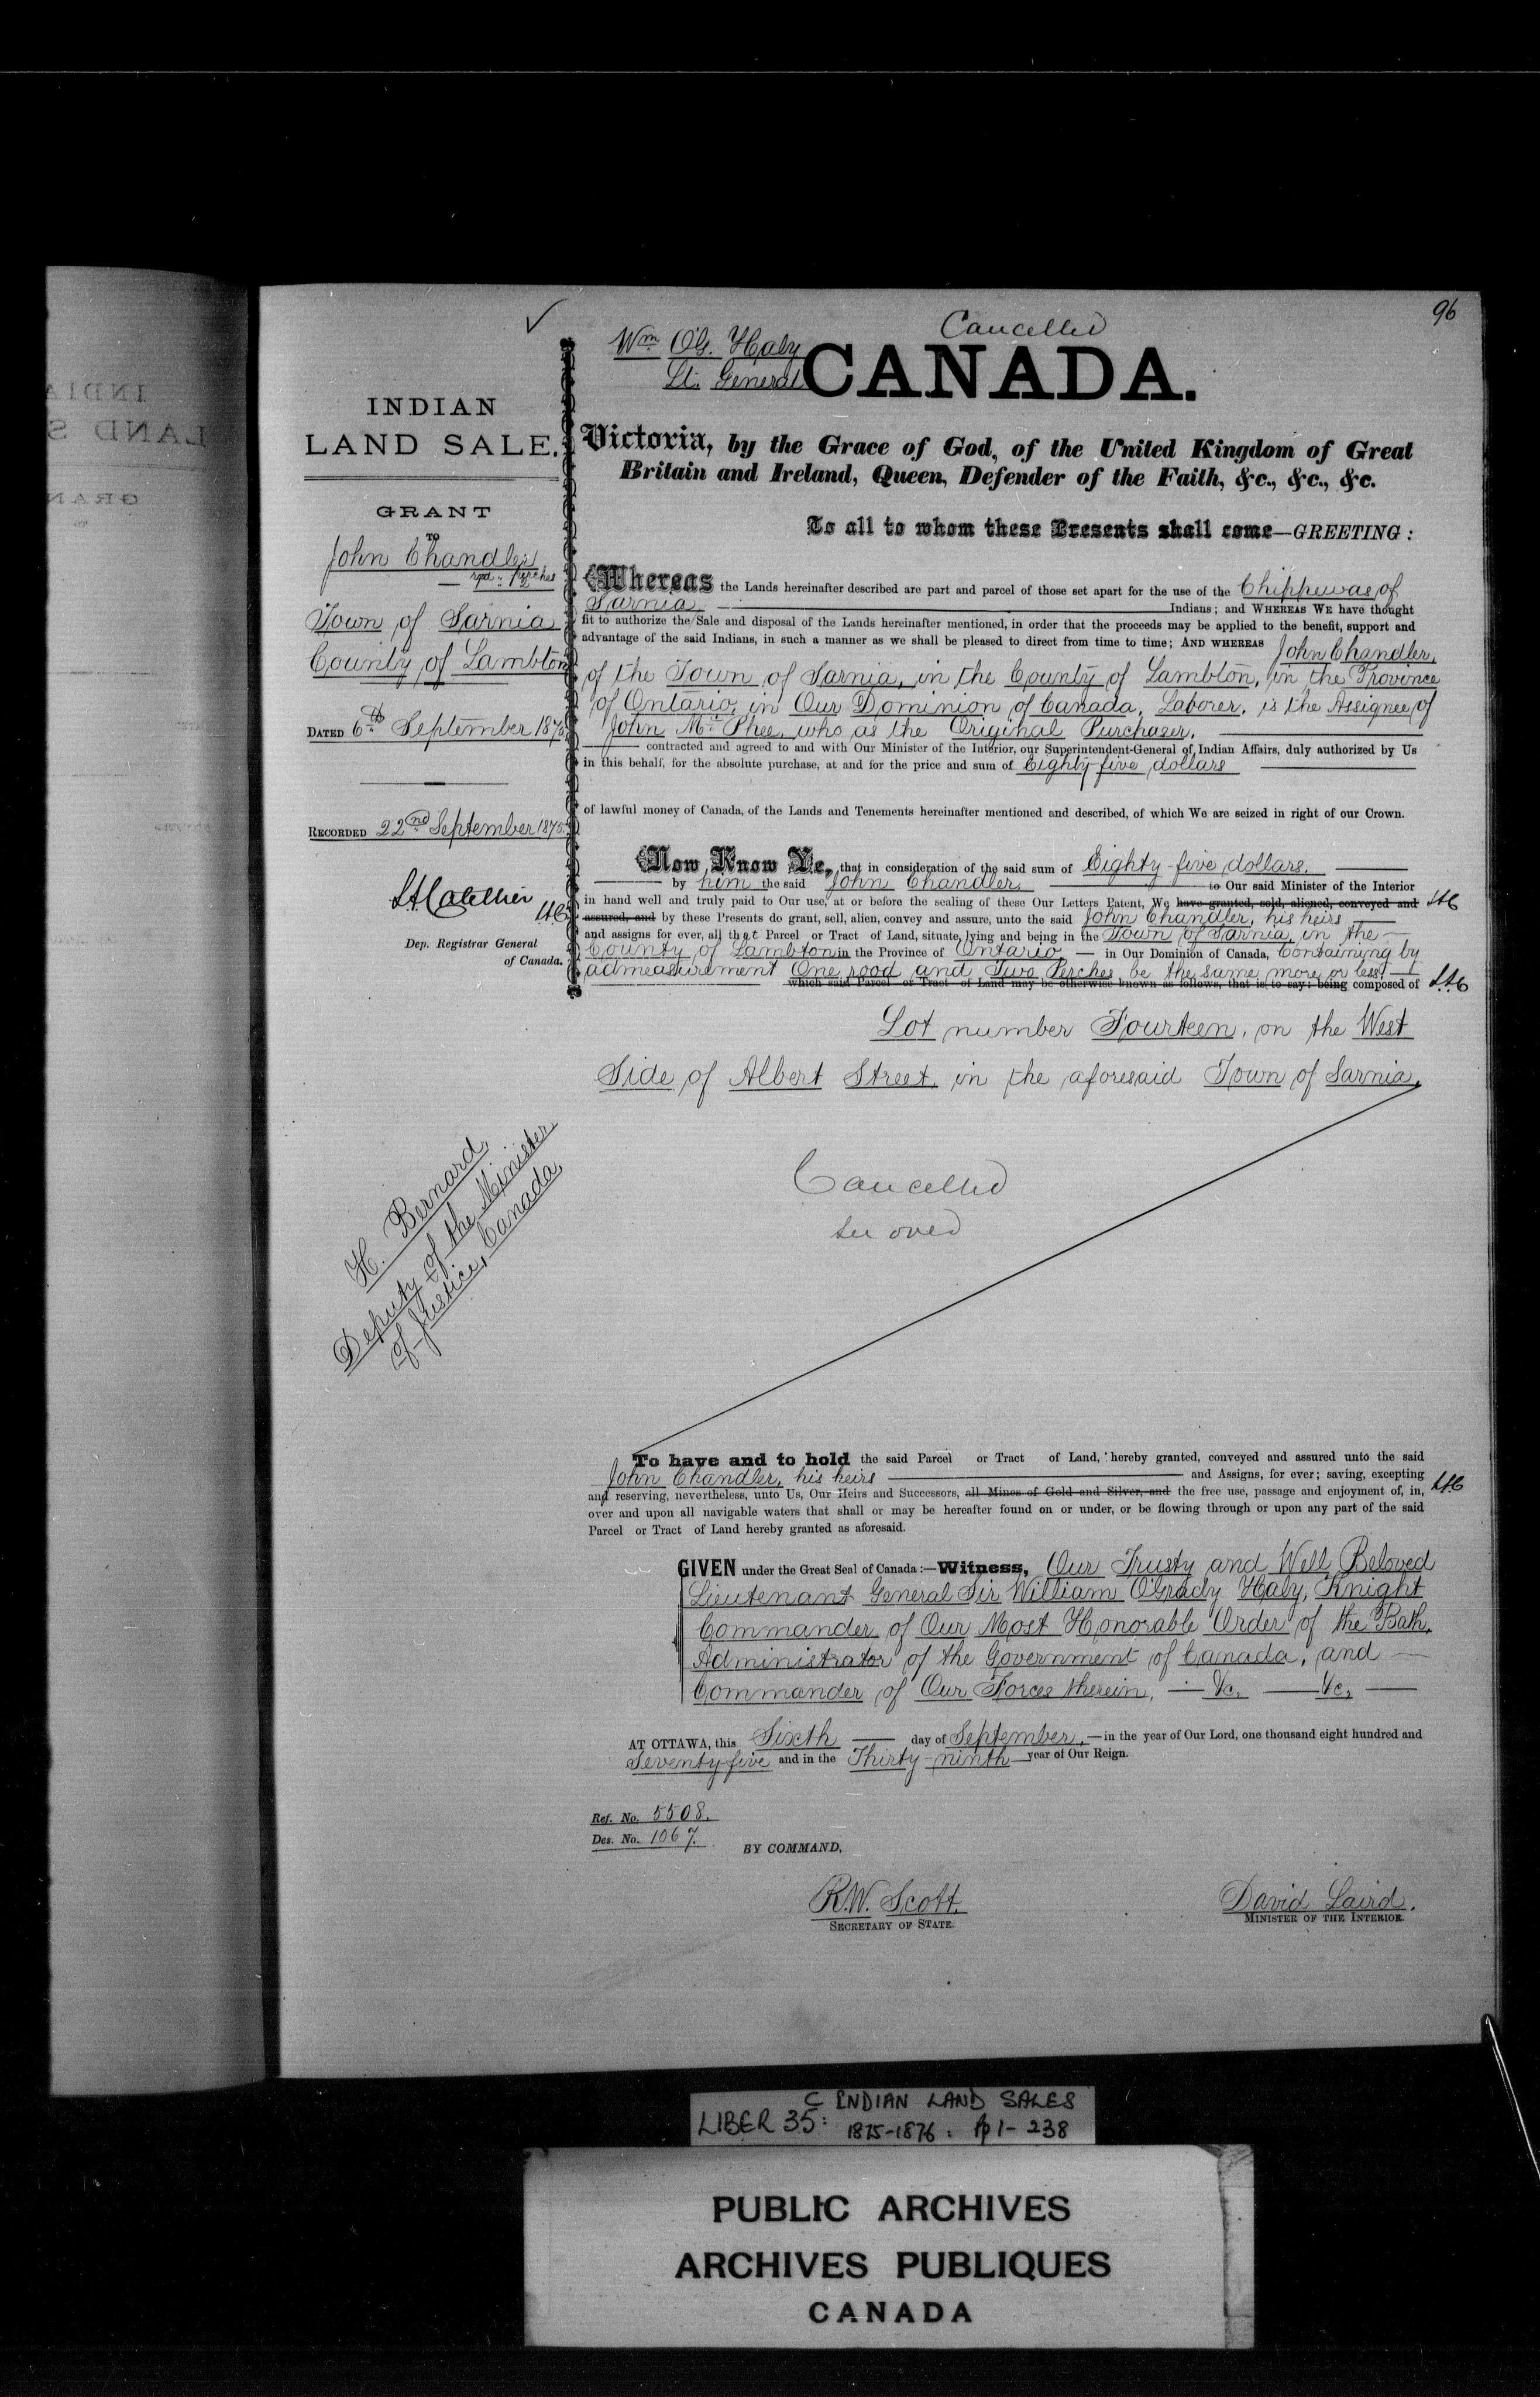 96
Cancelled
Wm O'G. Haly
Lt. General
CANADA.
INDIAN
LAND SALE.
GRANT
TO
John Chandler
rood perches
Town of Sarnia
County of Lambton
DATED 6th September 1875
RECORDED 22nd September 1875
LHC
Dep. Registrar General
of Canada.
H. Bernard,
Deputy of the Minister
of Justice, Canada
Victoria, by the Grace of God, of the United Kingdom of Great
Britain and Ireland, Queen, Defender of the Faith, &c., &c., &c.
To all to whom these Presents shall come—GREETING:
Whereas the Lands hereinafter described are part and parcel of those set apart for the use of the Chippewas of
Sarnia Indians; and WHEREAS WE have thought
fit to authorize the Sale and disposal of the Lands hereinafter mentioned, in order that the proceeds may be applied to the benefit, support and
advantage of the said Indians, in such a manner as we shall be pleased to direct from time to time; AND WHEREAS John Chandler,
of the Town of Sarnia, in the County of Lambton, in the Province
of Ontario, in Our Dominion of Canada, Laborer, is the Assignee of
John Mc Phee, who as the Original Purchaser,
contracted and agreed to and with Our Minister of the Interior, our Superintendent-General of Indian Affairs, duly authorized by Us
in this behalf, for the absolute purchase, at and for the price and sum of Eighty five dollars
of lawful money of Canada, of the Lands and Tenements hereinafter mentioned and described, of which We are seized in right of our Crown.
Now Know Ye, that in consideration of the said sum of Eighty-five dollars.
by him the said John Chandler, to Our said Minister of the Interior
in hand well and truly paid to Our use, at or before the sealing of these Our Letters Patent, We have granted, sold, aliened, conveyed and LHC
assured, and by these Presents do grant, sell, alien, convey and assure, unto the said John Chandler, his heirs
and assigns for ever, all that Parcel or Tract of Land, situate, lying and being in the Town of Sarnia, in the
County of Lambton in the Province of Ontario in Our Dominion of Canada, Containing by
admeasurement One rood and Two Perches be the same more or less,
which said Parcel or Tract of Land may be otherwise known as follows, that is to say: being composed of LHC
Lot number Fourteen, on the West
Side of Albert Street, in the aforesaid Town of Sarnia.
Cancelled
see over
To have and to hold the said Parcel or Tract of Land, hereby granted, conveyed and assured unto the said
John Chandler, his heirs and Assigns, for ever; saving, excepting
and reserving, nevertheless, unto Us, Our Heirs and Successors, all Mines of Gold and Silver, and the free use, passage and enjoyment of, in, LHC
over and upon all navigable waters that shall or may be hereafter found on or under, or be flowing through or upon any part of the said
Parcel or Tract of Land hereby granted as aforesaid.
GIVEN under the Great Seal of Canada:—Witness, Our Trusty and Well Beloved
Lieutenant General Sir William O'Grady Haly, Knight
Commander of Our Most Honorable Order of the Bath,
Administrator of the Government of Canada, and
Commander of Our Forces therein, &c. &c,
AT OTTAWA, this Sixth day of September, in the year of Our Lord, one thousand eight hundred and
Seventy-five and in the Thirty-ninth year of Our Reign.
Ref. No. 5508.
Des. No. 1067.
BY COMMAND,
R.W. Scott.
SECRETARY OF STATE.
David Laird.
MINISTER OF THE INTERIOR.
C INDIAN LAND SALES
LIBER 35: 1875-1876: pp 1-238
PUBLIC ARCHIVES
ARCHIVES PUBLIQUES
CANADA